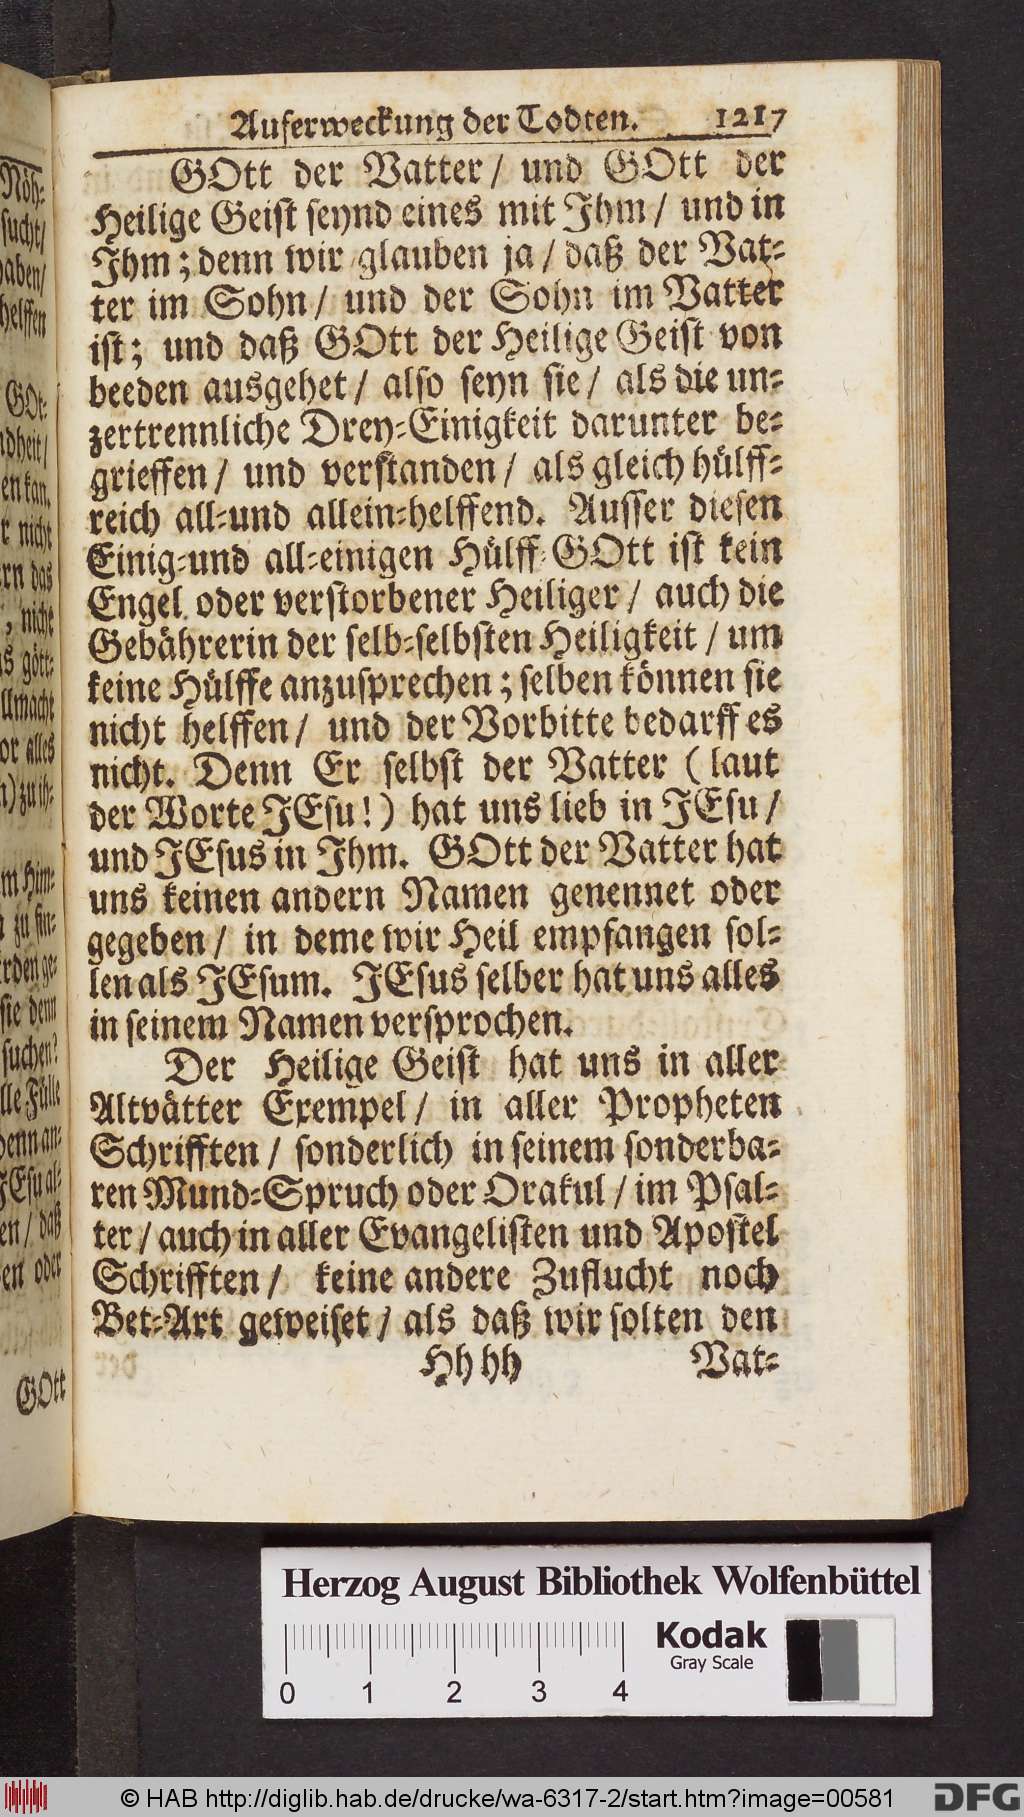 Auferweckung der Todten. 1217
GOtt der Vatter / und GOtt der
Heilige Geist seynd eines mit Ihm / und in
Ihm; denn wir glauben ja / daß der Vat-
ter im Sohn / und der Sohn im Vatter
ist; und daß GOtt der Heilige Geist von
beeden ausgehet / also seyn sie / als die un-
zertrennliche Drey-Einigkeit darunter be-
grieffen / und verstanden / als gleich hülff-
reich all-und allein-helffend. Ausser diesen
Einig-und all-einigen Hülff-GOtt ist kein
Engel oder verstorbener Heiliger / auch die
Gebährerin der selb-selbsten Heiligkeit / um
keine Hülffe anzusprechen; selben können sie
nicht helffen / und der Vorbitte bedarff es
nicht. Denn Er selbst der Vatter (laut
der Worte JEsu!) hat uns lieb in JEsu /
und JEsus in Ihm. GOtt der Vatter hat
uns keinen andern Namen genennet oder
gegeben / in deme wir Heil empfangen sol-
len als JEsum. JEsus selber hat uns alles
in seinem Namen versprochen.
Der Heilige Geist hat uns in aller
Altvätter Exempel / in aller Propheten
Schrifften / sonderlich in seinem sonderba-
ren Mund-Spruch oder Orakul / im Psal-
ter / auch in aller Evangelisten und Apostel
Schrifften / keine andere Zuflucht noch
Bet-Art geweiset / als daß wir solten den
Hh hh Vat-
Nöh-
sucht /
haben /
helffen
GOt-
en kan.
nicht
das
nicht
gött-
alles
Him-
zu fin-
ge-
sie denn
suchen?
Fülle
an-
JEsu al-
daß
oder
GOtt
Herzog August Bibliothek Wolfenbüttel
Kodak
Gray Scale
0 1 2 3 4
© HAB http://diglib.hab.de/drucke/wa-6317-2/start.htm?image=00581
DFG